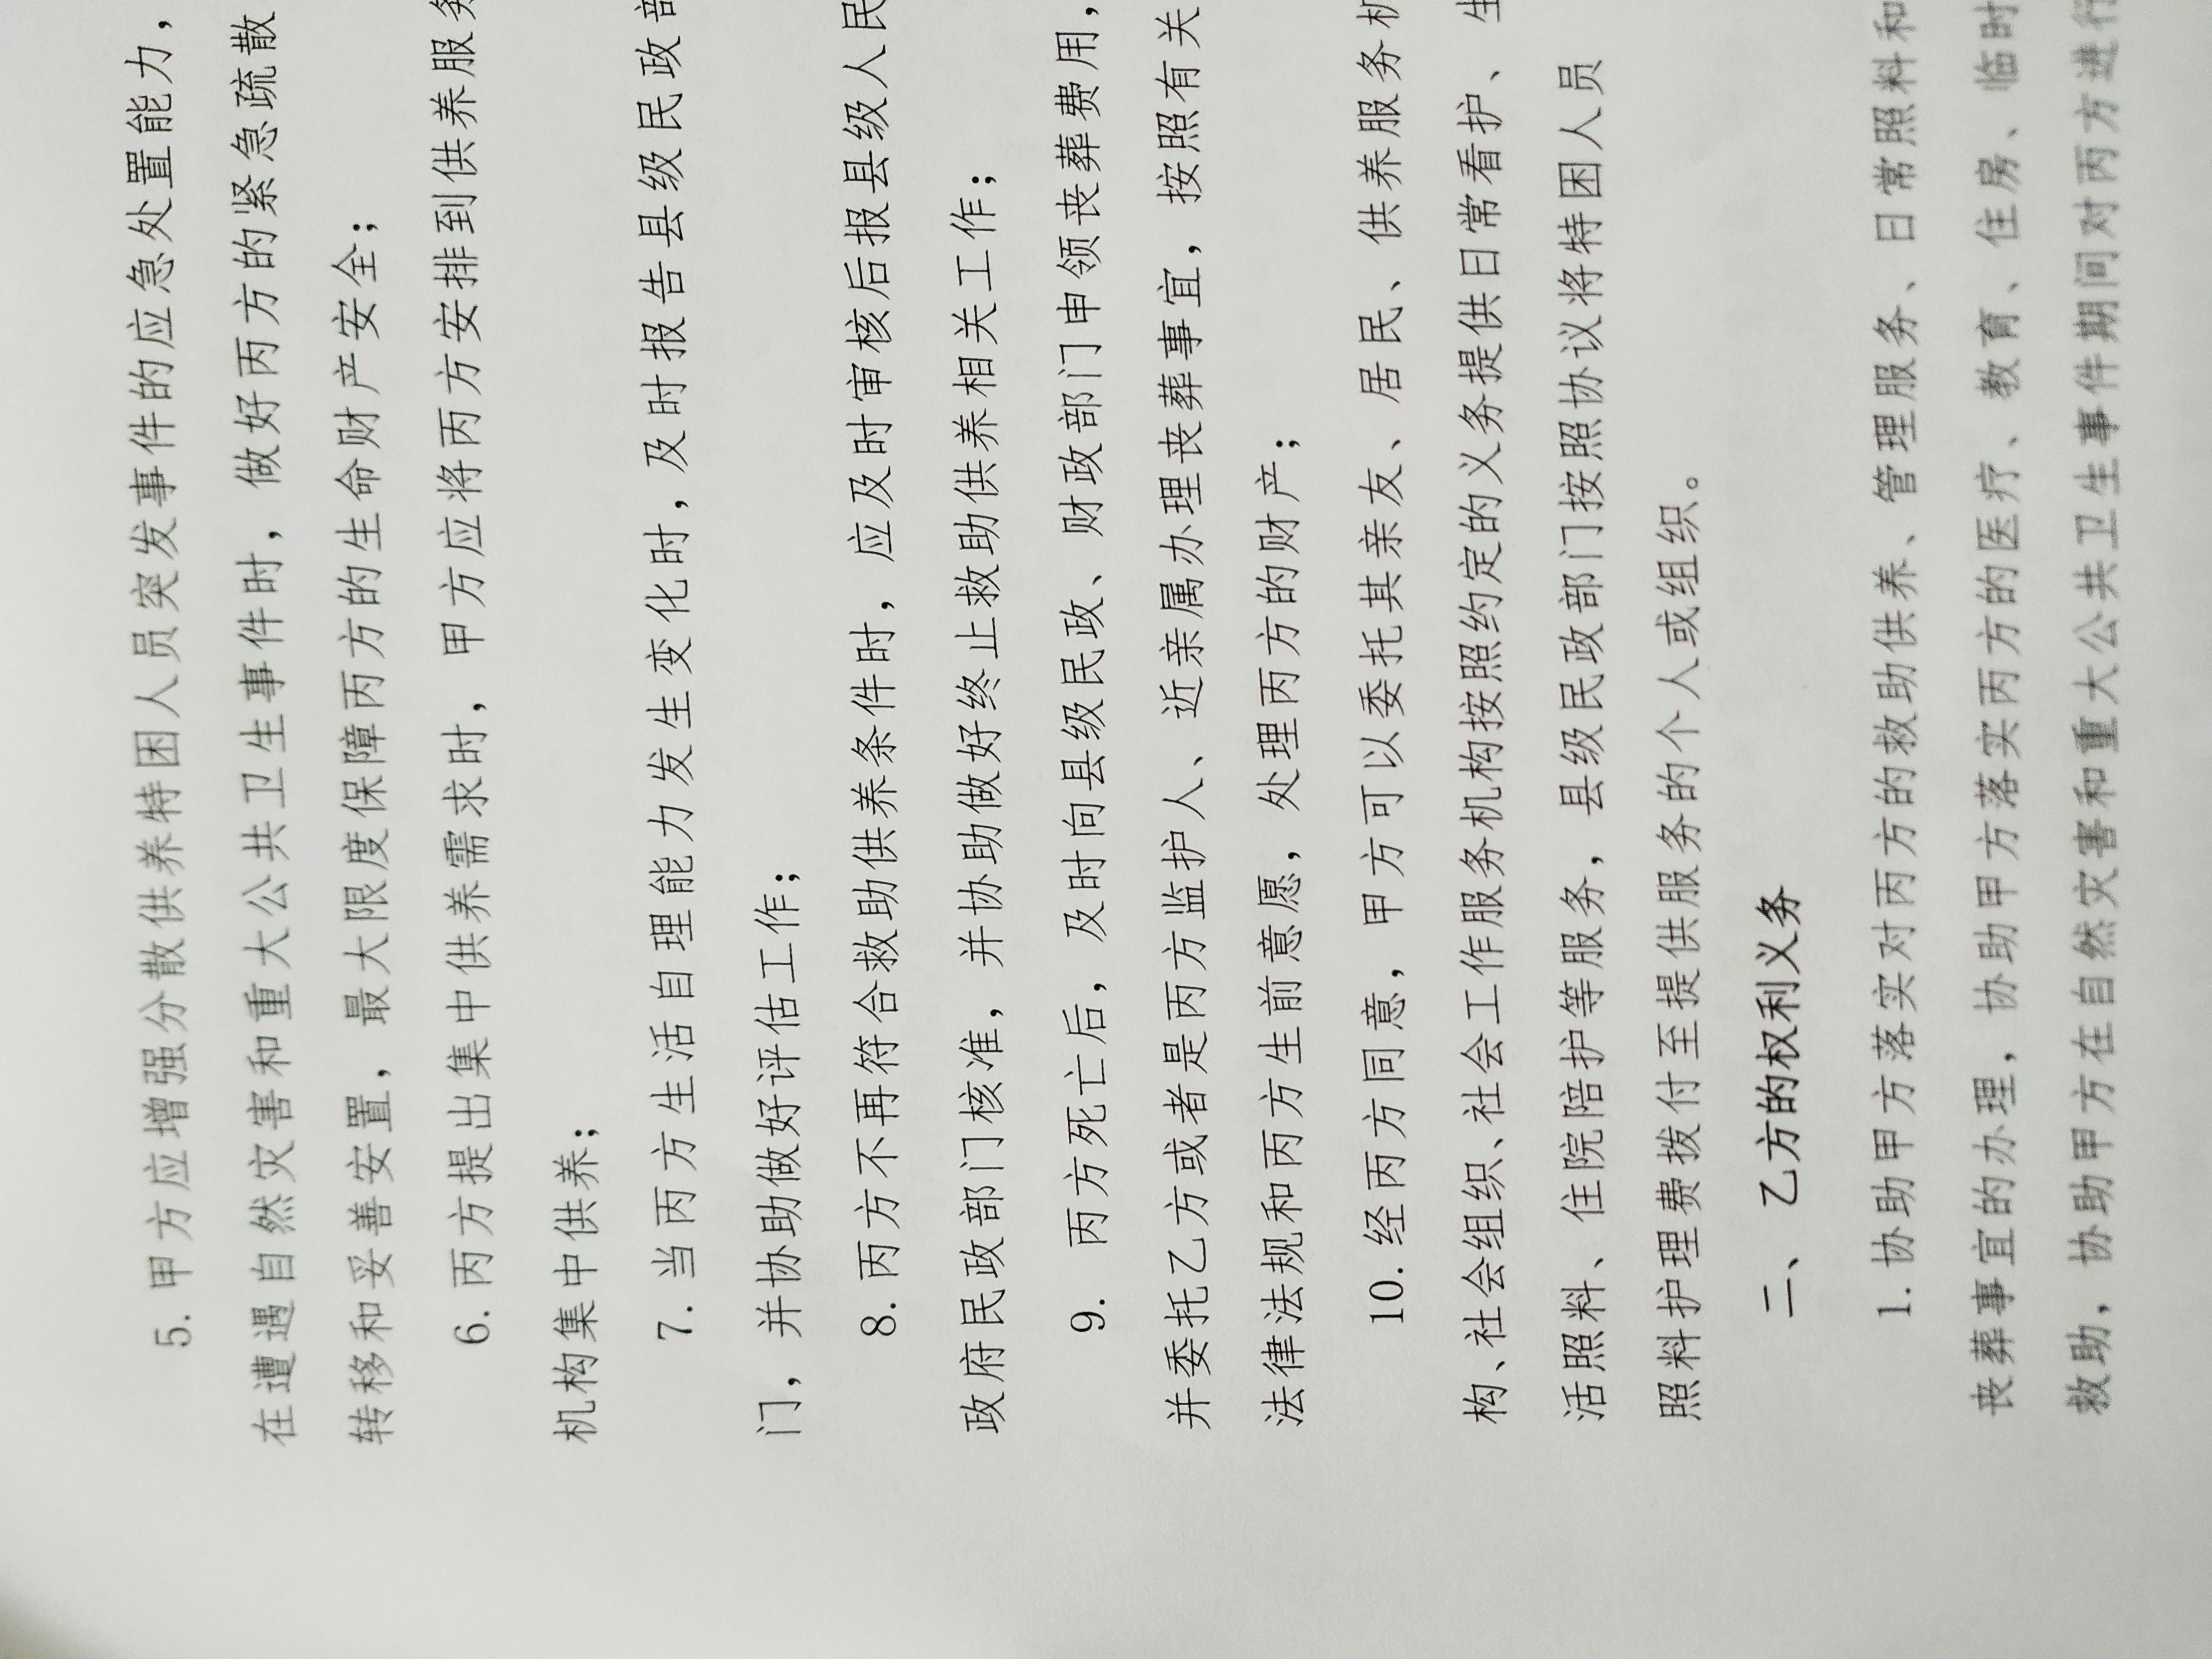 5. 甲方应增强分散供养特困人员突发事件的应急处置能力，
在遭遇自然灾害和重大公共卫生事件时，做好丙方的紧急疏散
转移和妥善安置，最大限度保障丙方的生命财产安全；
6. 丙方提出集中供养需求时，甲方应将丙方安排到供养服务
机构集中供养；
7. 当丙方生活自理能力发生变化时，及时报告县级民政部
门，并协助做好评估工作；
8. 丙方不再符合救助供养条件时，应及时审核后报县级人民
政府民政部门核准，并协助做好终止救助供养相关工作；
9. 丙方死亡后，及时向县级民政、财政部门申领丧葬费用，
并委托乙方或者是丙方监护人、近亲属办理丧葬事宜，按照有关
法律法规和丙方生前意愿，处理丙方的财产；
10. 经丙方同意，甲方可以委托其亲友、居民、供养服务机
构、社会组织、社会工作服务机构按照约定的义务提供日常看护、生
活照料、住院陪护等服务，县级民政部门按照协议将特困人员
照料护理费拨付至提供服务的个人或组织。
二、乙方的权利义务
1. 协助甲方落实对丙方的救助供养、管理服务、日常照料和
丧葬事宜的办理，协助甲方落实丙方的医疗、教育、住房、临时
救助，协助甲方在自然灾害和重大公共卫生事件期间对丙方进行